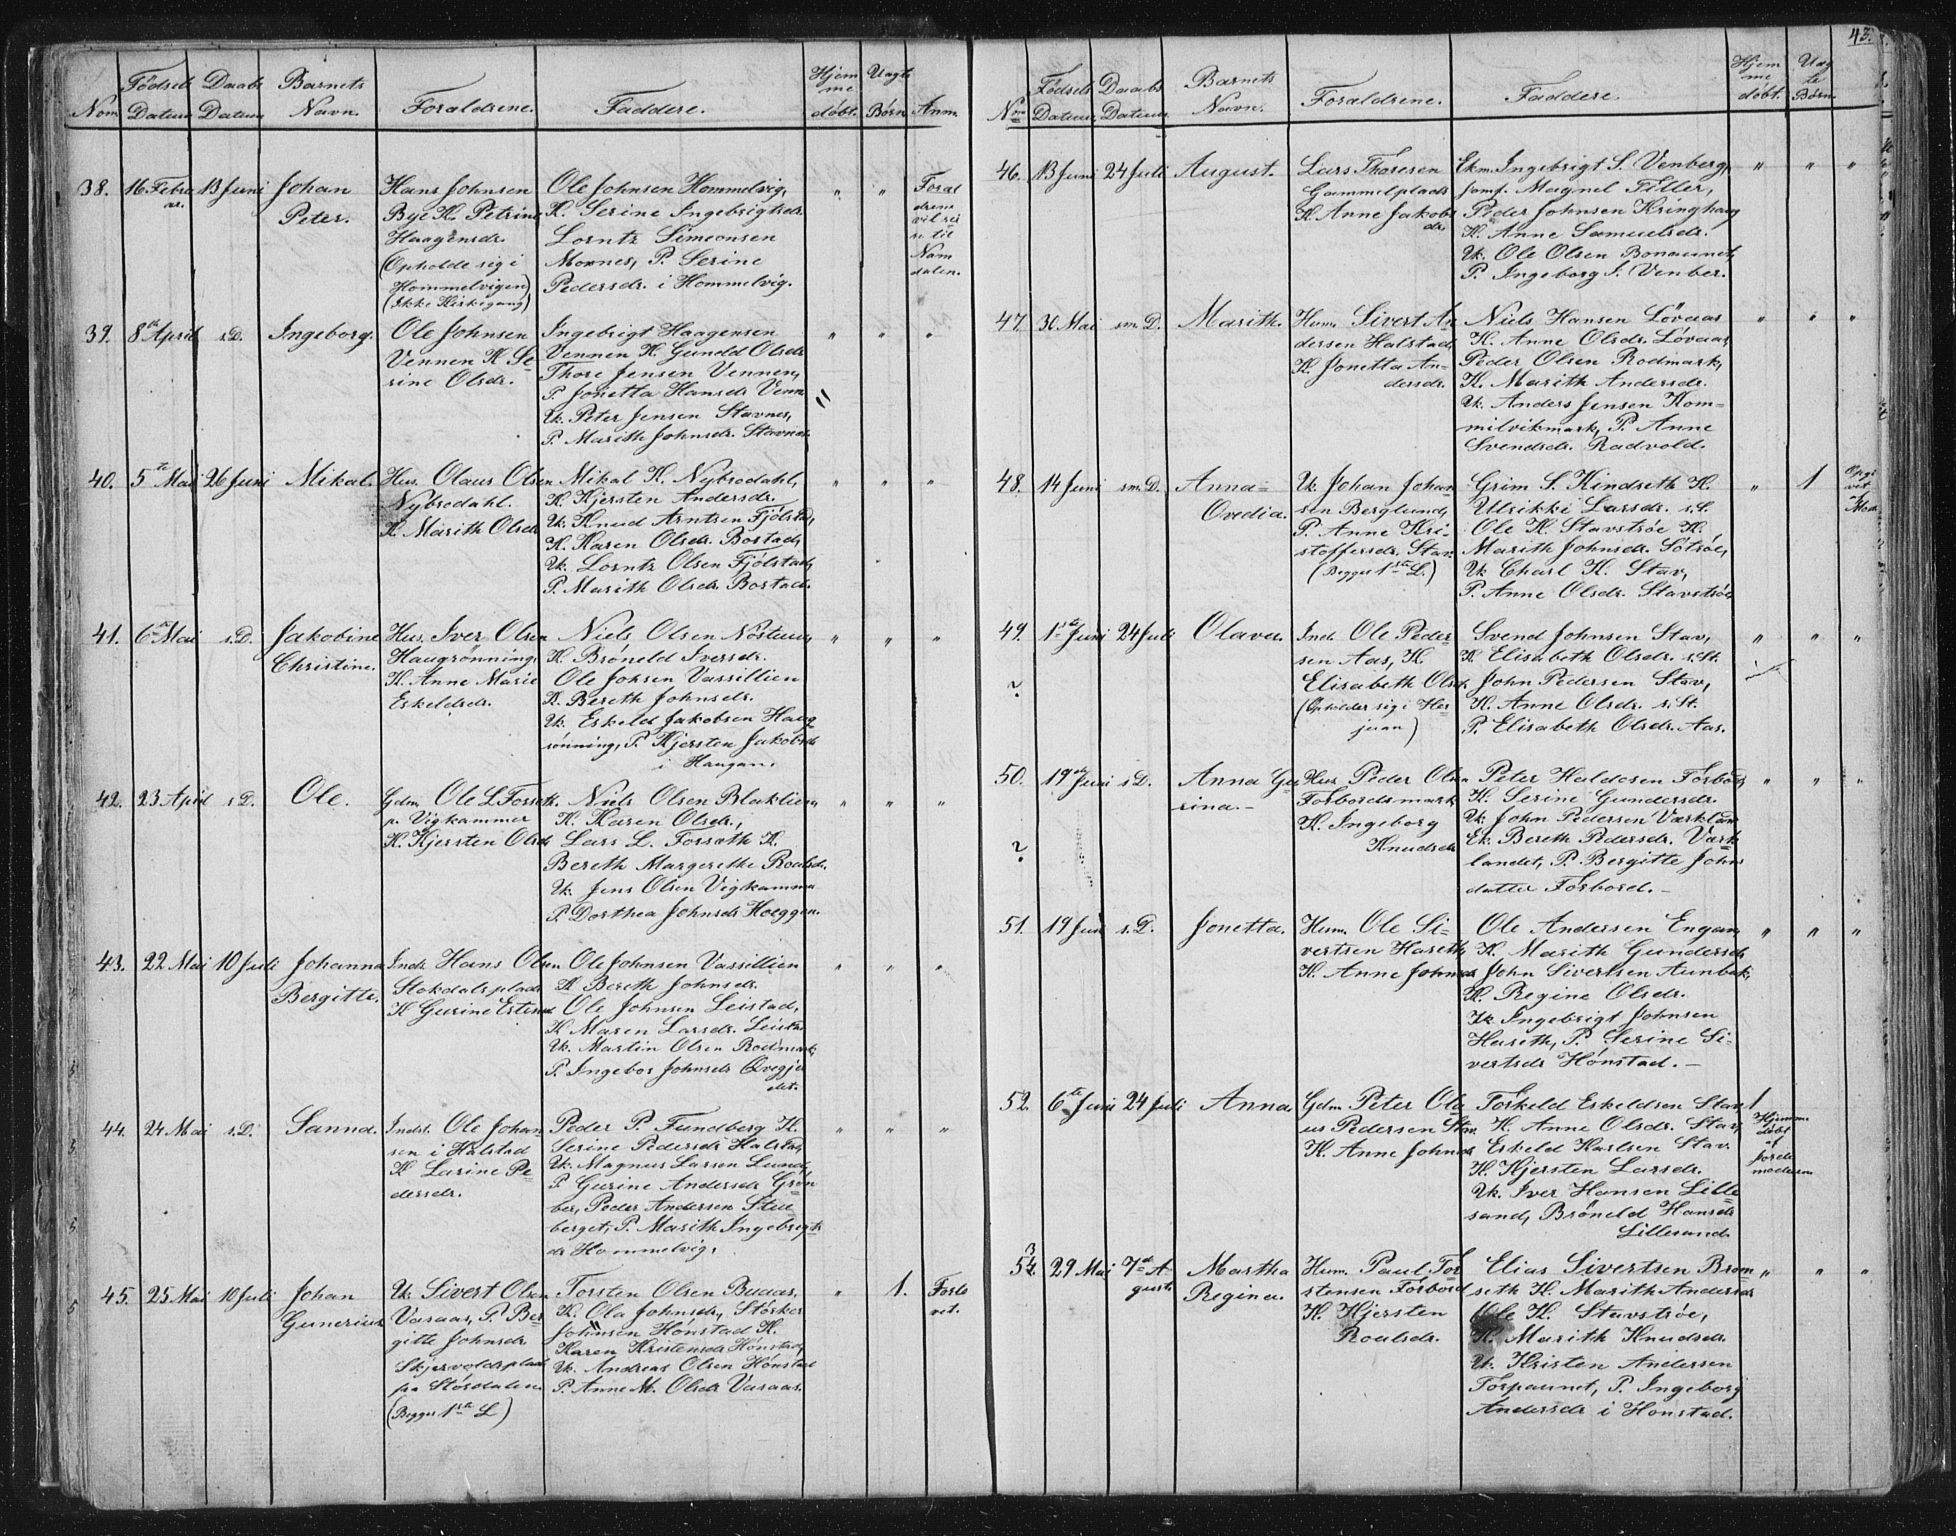 43.
Nom Fødsels Datum Daabs Datum Barnets Navn. Forældrene. Faddere. Hjem me døbt. Uægte Børn Anm.
38. 16 Febru ar. 13 Juni Johan Peter.
Hans Johnsen
Bye K. Petrine
Haagensdr.
(Opholde sig i
Hommelvigen)
(Ikke Kirkegang)
Ole Johnsen Hommelvig,
K. Serine Ingebrigtsdr.
Lorntz Simeonsen
Mornes, P. Serine
Pedersdr. i Hommelvig.
" "
Foræl
drene
vil rei
se til
Nam
dalen.
39. 8de April s.D. Ingeborg.
Ole Johnsen
Vennen K. Se-
rine Olsdr.
Ingebrigt Haagensen
Vennen K. Gunild Olsdr
Thore Jensen Vennen,
P. Jonetta Hansdr Venn
Uk. Peter Jensen Stavnes,
P. Marith Johnsdr. Stavnes.
" " "
40. 5te Mai 26 Juni Mikal.
Hus. Olaus Olsen
Nybrodahl.
K. Marith Olsdr
Mikal K. Nybrodahl,
K. Kjersten Andersdr.
Uk. Knud Arntsen Fjølstad,
K. Karen Olsdr. Bostad,
Uk. Lorntz Olsen Fjølstad,
P. Marith Olsdr. Bostad.
" " "
41. 6te Mai s.D. Jakobine Christine.
Hus. Iver Olsen
Haugrønning,
K. Anne Marie
Eskeldsdr.
Niels Olsen Nøstun,
K. Brøneld Iversdr.
Ole Johsen Vassillien
K. Bereth Johnsdr.
Uk. Eskeld Jakobsen Haug
rønning, P. Kjersten Jakobsdr
i Haugan.
" " "
42. 23 April s.D. Ole.
Gdm. Ole L Forseth.
p. Vigkammer
K. Kjersten Olsdr
Niels Olsen Blaklien,
K. Karen Olsdr.,
Lars L. Forsæth K.
Bereth Margrethe Roalsdr.
Uk. Jens Olsen Vigkammer
P. Dorthea Johnsdr Hoeggen.
" " "
43. 22 Mai 10 Juli Johanna Bergitte.
Inds. Hans Olsen
Stokdalsplads
K. Gurine Estensd
Ole Johnsen Vassillien
K. Bereth Johnsdr.
Ole Johnsen Leistad,
K. Maren Larsdr. Leistad
Uk. Martin Olsen Rodmark,
P. Ingebor Johnsdr Qvegje
det.
" " "
44. 24 Mai s.D. Sanna.
Inds. Ole Johan-
sen i Halstad
K. Larine Pe-
dersdr.
Peder P. Fundberg K.
Serine Pedersdr Halstad,
Uk. Magnus Larsen Lund,
P. Gurine Andersdr Grøn
ber, Peder Andersen Stu
berget, P. Marith Ingebrigts
dr Hommelvig.
" " "
45. 25 Mai 10 Juli Johan Gunerius
Uk. Sivert Olsen
Varaas, P. Ber-
gitte Johnsdr.
Skjervoldsplads
pa Størdalen
(Begges 1ste L)
Torsten Olsen Buaas,
K. Ola Johnsdr, Størker
Johnsen Hønstad K.
Karen Kristensdr Hønstad,
Uk. Andreas Olsen Hønstad
P. Anne M. Olsdr Varaas.
" 1.
Forlo
vet.
Nom Fødsels Datum Daabs Datum. Barnets Navn. Forældrene. Faddere. Hjem me døbt. Uæg te Børn.
46. 13 Juni 24 Juli August.
Lars Thoresen
Gammelplads
K. Anne Jakobs
dr.
Ekm. Ingebrigt S. Venberg,
Jomf. Magnel Tiller,
Peder Johnsen Kringhaug
K. Anne Samuelsdr.
Uk. Ole Olsen Bonaunet,
P. Ingeborg S. Venber.
" " "
47. 30 Mai sm. D. Marith.
Husm. Sivert An
dersen Halstad,
K. Jonetta An-
dersdr.
Niels Hansen Løvaas
K. Anne Olsdr. Løvaas,
Peder Olsen Rodmark,
K. Marith Andersdr.
Uk. Anders Jensen Hom=
milvikmark, P. Anne
Svendsdr. Radvold.
" " "
48. 14 Juni sm. D. Anna= Ovedia.
Uk. Johan Johan
sen Berglund,
P. Anne Kri-
stoffersdr. Stav.
(Begges 1ste L.)
Grim S. Kindseth K.
Ulrikki Larsdr. s.S.
Ole K. Stavstrøe K.
Marith Johnsdr. Søtrøe,
Uk Charl K. Stav,
P. Anne Olsdr. Stavstrøe,
" 1
Opgi
vet
Mod.
49. 1ste Juni 24 Juli Olava.
Ind. Ole Peder-
sen Aas, K.
Elisabeth Olsdr.
(Opholder sig i Her
juan)
Svend Johnsen Stav,
K. Elisabeth Olsdr. s.St.
John Pedersen Stav,
K. Anne Olsdr. s.St.
P. Elisabeth Olsdr. Aas.
" " "
?
50. 19de Juni s.D. Anna Gu rina.-
Hus. Peder Olsen
Forbordsmark
K. Ingeborg
Knudsdr
Peter Haldosen Forbord,
K. Serine Gundersdr.
Uk. John Pedersen Værklan
Ek. Bereth Pedersdr. Værk-
landet, P. Bergitte Johns
datter Forbord.-
" " "
?
51. 19 Juni s.D. Jonetta.
Husm. Ole Si-
vertsen Hareth,
K. Anne Johnsdr
Ole Andersen Engan,
K. Marith Gundersdr
John Sivertsen Aunbak,
K. Regine Olsdr.
Uk. Ingebrigt Johnsen
Hareth, P. Serine Si-
vertsdr Hønstad.-
" " "
52. 6te Juni 24 Juli Anna.
Gdm Peter Ola
us Pedersen Stav.
K. Anne Johnsdr
Torkeld Eskeldsen Stav
K. Anne Olsdr. Stav,
Eskeld Karlsen Stav.
K. Kjersten Larsdr.
Uk. Iver Hansen Lille
sand, Brøneld Hansdr
Lillesand.
1
Hjemme
døbt
af
Jorde
moderen
53. 29 Mai 7de A- gust. Martha Regina.
Husm. Paul Tor
stensen Forbord
K. Kjersten
Roalsdr.
Elias Sivertsen Brom
seth K. Marith Andersdr
Ole K. Stavstrøe,
K. Marith Knudsdr.
Uk. Kristen Andersen
Torpaunet, P. Ingeborg
Andersdr i Honstad.
" " "